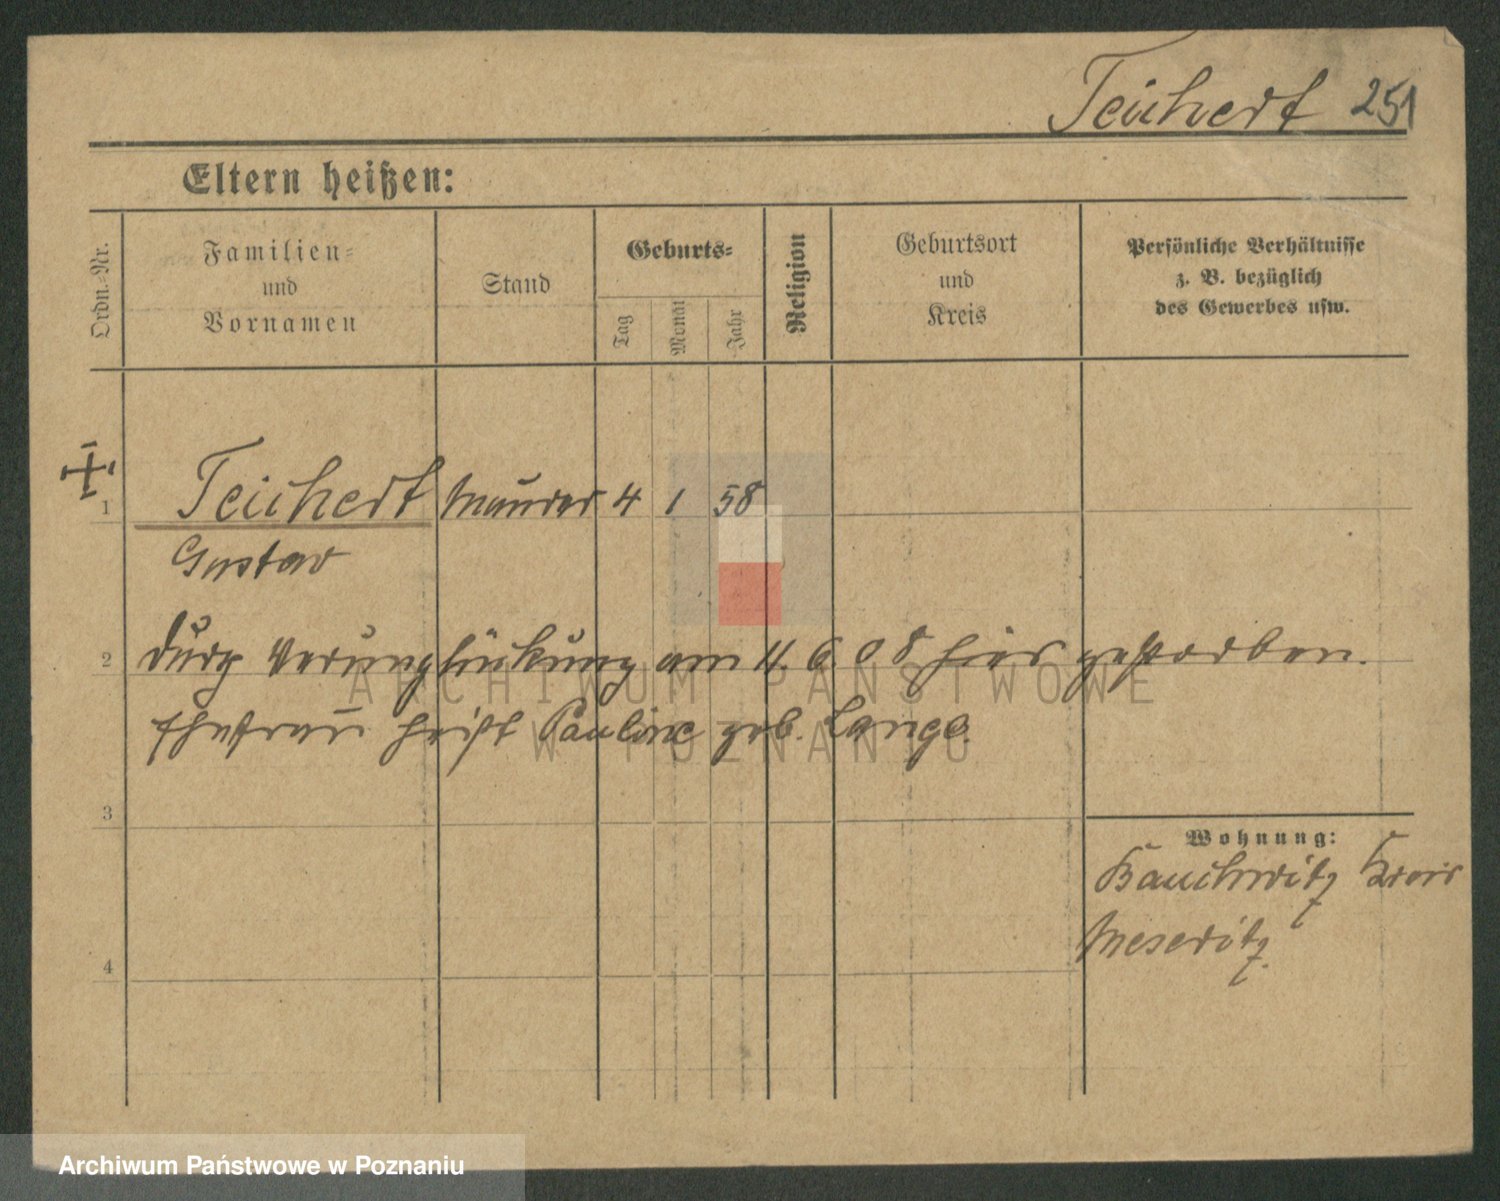 Teichert 251
Eltern heißen:
Ordn.-Nr.
Familien-
und
Vornamen
Stand
Geburts-
Tag
Monat
Jahr
Religion
Geburtsort
und
Kreis
Persönliche Verhältnisse
z. B. bezüglich
des Gewerbes usw.
1 Teichert Maurer 4 1 58
Gustav
2 durch Verunglückung am 11. 6. 08 hier gestorben.
Ehefrau heißt Pauline geb. Lange.
3
Wohnung:
Bauchwitz Kreis
Meseritz.
4
ARCHIWUM PAŃSTWOWE
W POZNANIU
Archiwum Państwowe w Poznaniu